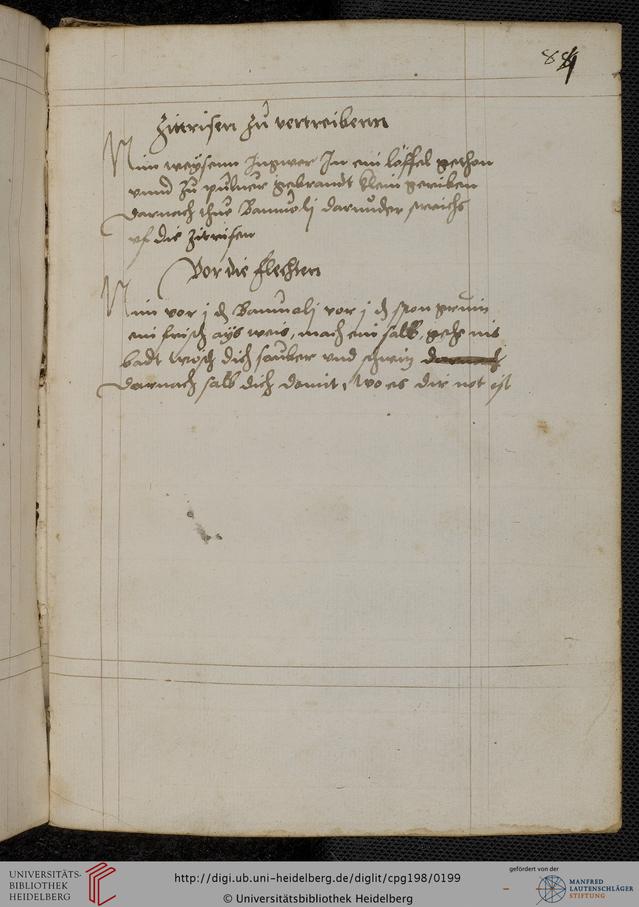 Zittrisen zu vertreibenn
Nim weysenn Ingwer In ein löffel gethon
vnnd zu puluer gebrandt klein geriben
darnach thue Baumolj darunder streichs
vf die Zitrisen
Vor die flechten
Nim vor j ₰ Baumolj vor j ₰ grun
ein frisch ayß weis, mach ein salb, gehe ins
badt wesch dich sauber vnd schwitz
darnach salb dich damit, wo es dir not ist
UNIVERSITÄTS-
BIBLIOTHEK
HEIDELBERG
http://digi.ub.uni-heidelberg.de/diglit/cpg198/0199
© Universitätsbibliothek Heidelberg
gefördert von der
MANFRED
LAUTENSCHLÄGER
STIFTUNG